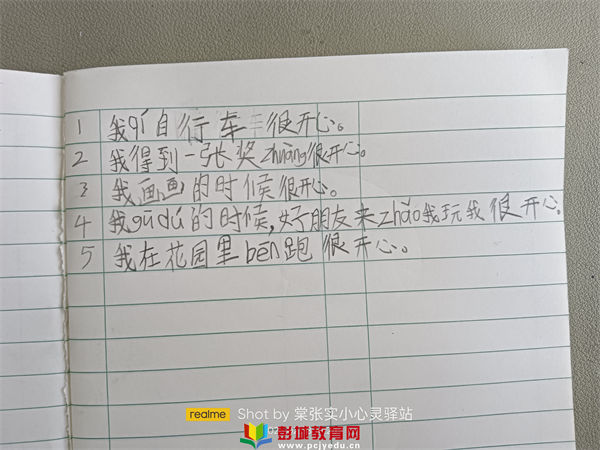 1 我qí自行车很开心。
2 我得到一张奖zhuàng很开心。
3 我画画的时候很开心。
4 我gūdú的时候,好朋友来zhǎo我玩我很开心。
5 我在花园里bēn跑很开心。
realme Shot by 棠张实小心灵驿站
彭城教育网
www.pcjyedu.com